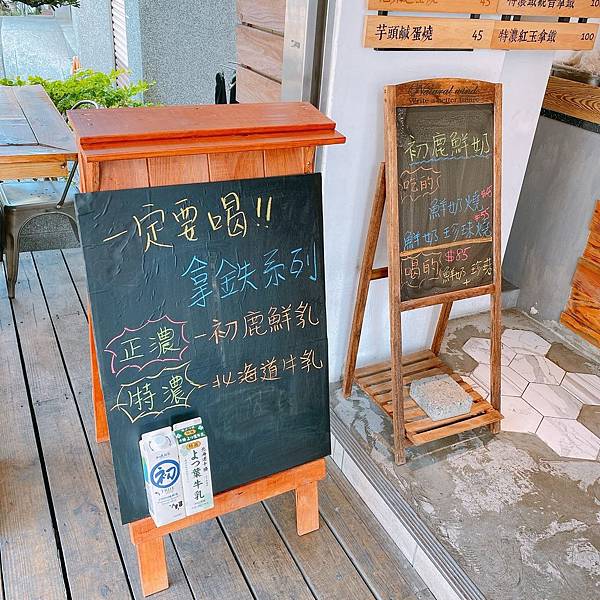 芋頭鹹蛋燒 45
特濃紅玉拿鐵 100
一定要喝!!
拿鉄系列
正濃 -初鹿鮮乳
特濃 -北海道牛乳
初
よつ葉牛乳
Natural wind
Write a better time
初鹿鮮奶
吃的
鮮奶燒$45
鮮奶珍珠燒$55
喝的 $85
鮮奶+珍珠